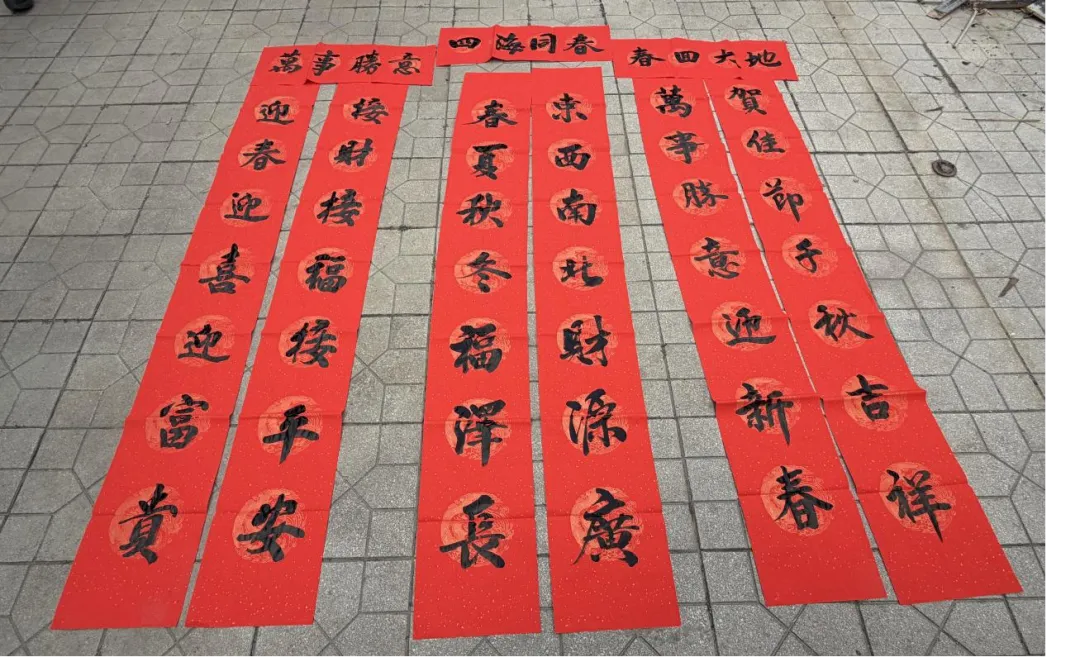 萬事勝意
迎春迎喜迎富貴
接財接福接平安
四海同春
春夏秋冬福澤長
東西南北財源廣
春回大地
萬事勝意迎新春
賀佳節千秋吉祥